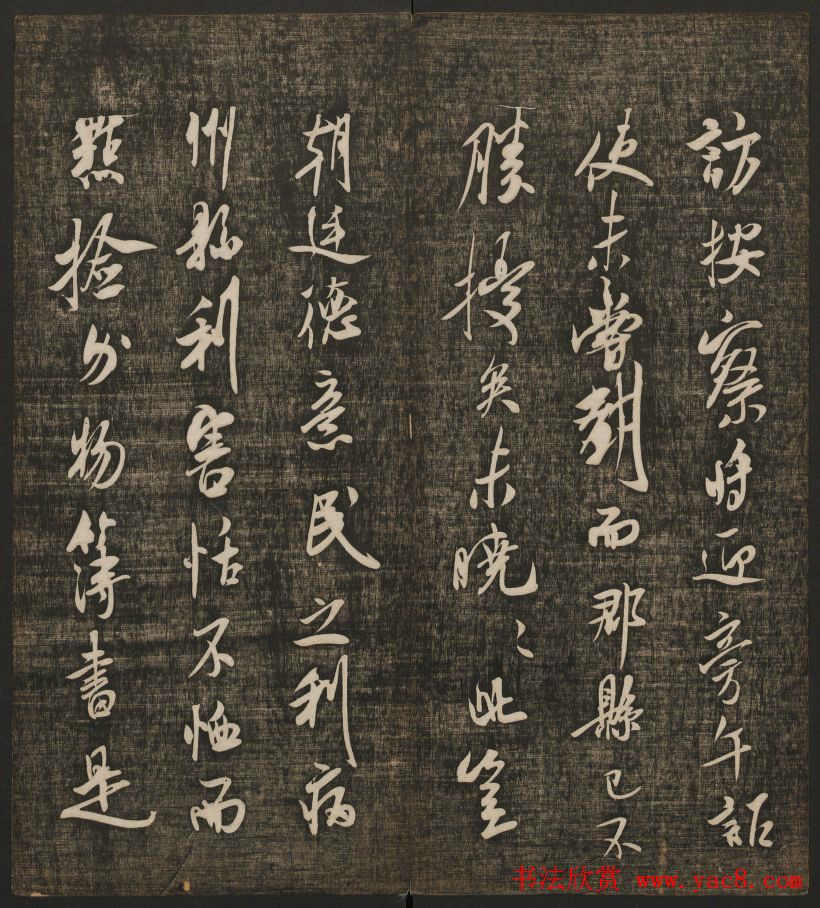 訪按察將迎旁午詎
使未嘗到而郡縣已不
勝擾矣未曉〻此豈
朝廷德意民之利病
州縣利害恬不恤而
點撿分物簿書是
书法欣赏 www.yac8.com